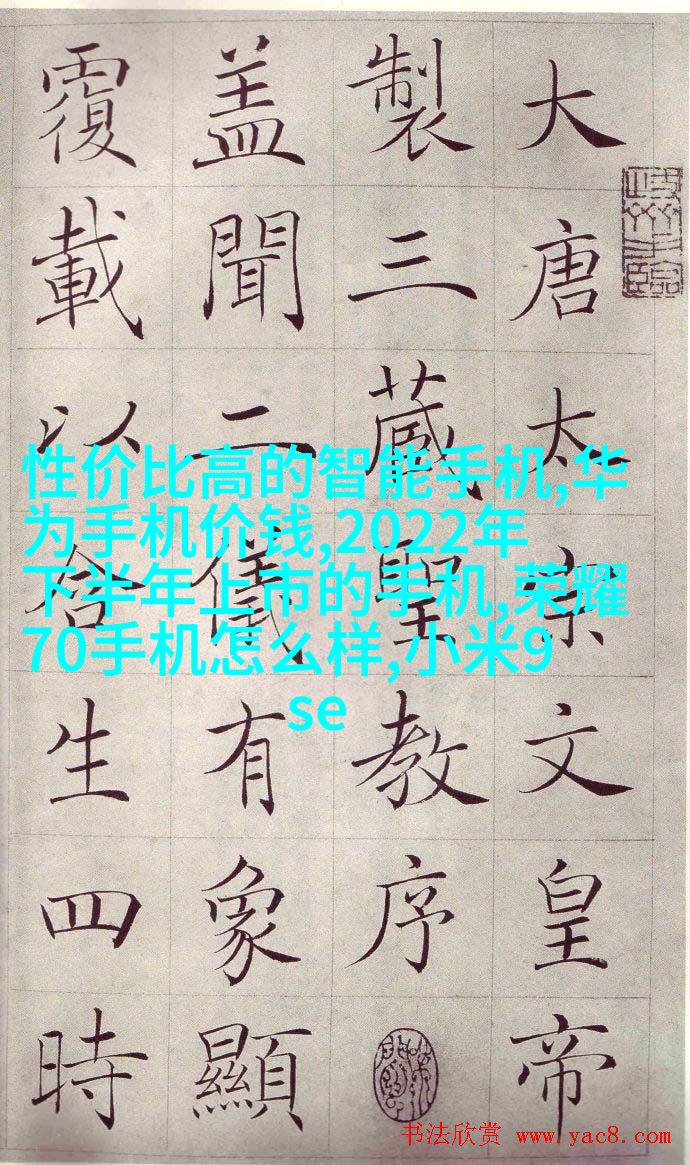 大唐太宗文皇帝
製三藏聖教序
盖聞二儀有象顯
覆載以含生四時
性价比高的智能手机,华
为手机价钱,2022年
下半年上市的手机,荣耀
70手机怎么样,小米9
se
书法欣赏 www.yac8.com